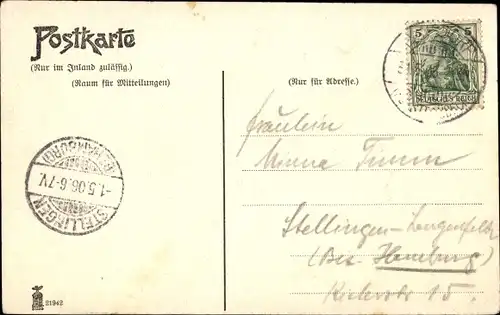 Postkarte
(Nur im Inland zulässig.)
(Raum für Mitteilungen)
(Nur für Adresse.)
5 5
DEUTSCHES REICH
Fräulein
Timm
Stellingen-Langenfelde
(Bez. Hamburg)
15.
STELLINGEN
-1.5.06.6-7V.
(BZ. HAMBURG)
21942